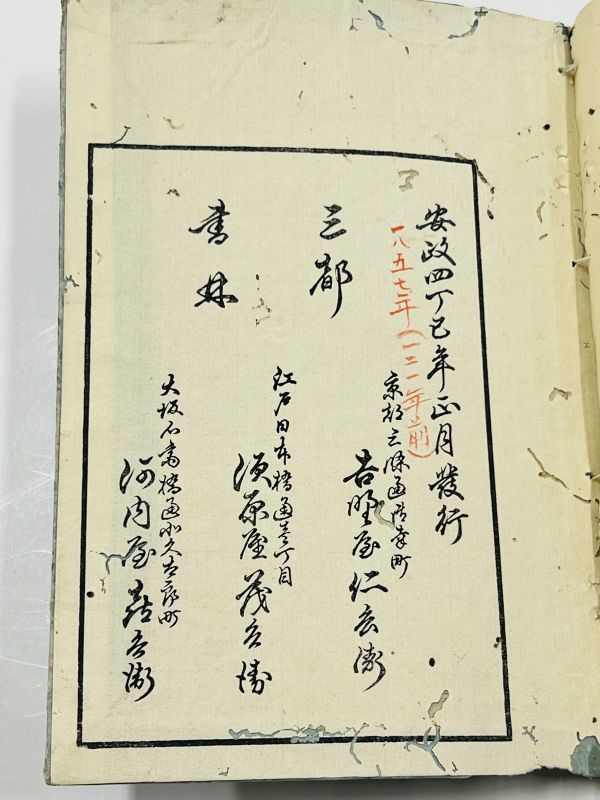 安政四丁巳年正月發行
一八五七年(一二一年前)
京都三條通御幸町
吉野屋仁兵衛
三都
江戸日本橋通壱丁目
須原屋茂兵衛
書林
大坂心斎橋通北久太郎町
河内屋喜兵衛